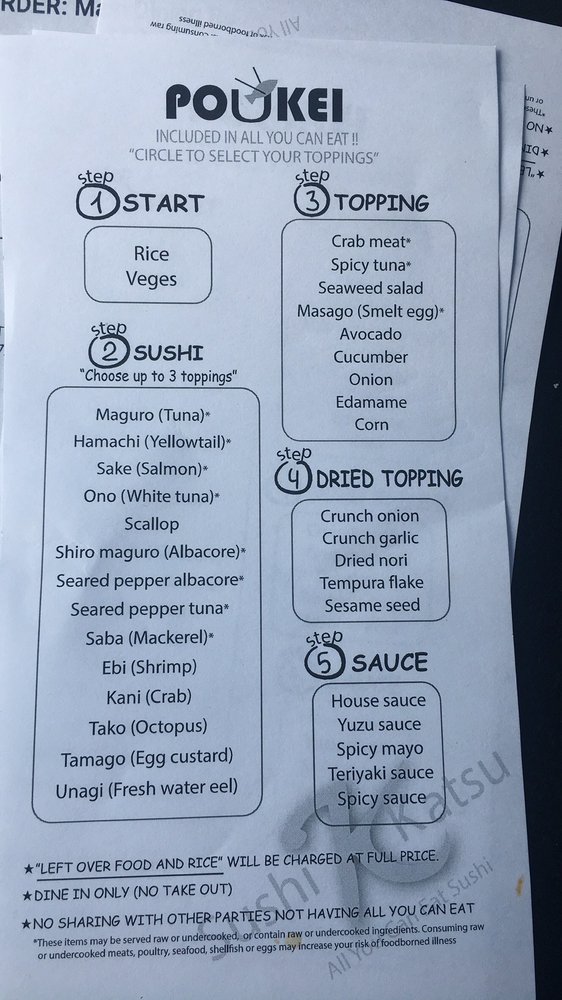 RDER: Ma
of foodborned illness
consuming raw
All Y
POUKEI
INCLUDED IN ALL YOU CAN EAT !!
"CIRCLE TO SELECT YOUR TOPPINGS"
step
1 START
Rice
Veges
step
2 SUSHI
"Choose up to 3 toppings"
Maguro (Tuna)*
Hamachi (Yellowtail)*
Sake (Salmon)*
Ono (White tuna)*
Scallop
Shiro maguro (Albacore)*
Seared pepper albacore*
Seared pepper tuna*
Saba (Mackerel)*
Ebi (Shrimp)
Kani (Crab)
Tako (Octopus)
Tamago (Egg custard)
Unagi (Fresh water eel)
step
3 TOPPING
Crab meat*
Spicy tuna*
Seaweed salad
Masago (Smelt egg)*
Avocado
Cucumber
Onion
Edamame
Corn
step
4 DRIED TOPPING
Crunch onion
Crunch garlic
Dried nori
Tempura flake
Sesame seed
step
5 SAUCE
House sauce
Yuzu sauce
Spicy mayo
Teriyaki sauce
Spicy sauce
★"LEFT OVER FOOD AND RICE" WILL BE CHARGED AT FULL PRICE.
★DINE IN ONLY (NO TAKE OUT)
★NO SHARING WITH OTHER PARTIES NOT HAVING ALL YOU CAN EAT
*These items may be served raw or undercooked, or contain raw or undercooked ingredients. Consuming raw
or undercooked meats, poultry, seafood, shellfish or eggs may increase your risk of foodborned illness
Sushi Katsu
All You Can Eat Sushi
*Thes
or un
★NO
★DI
★"LE